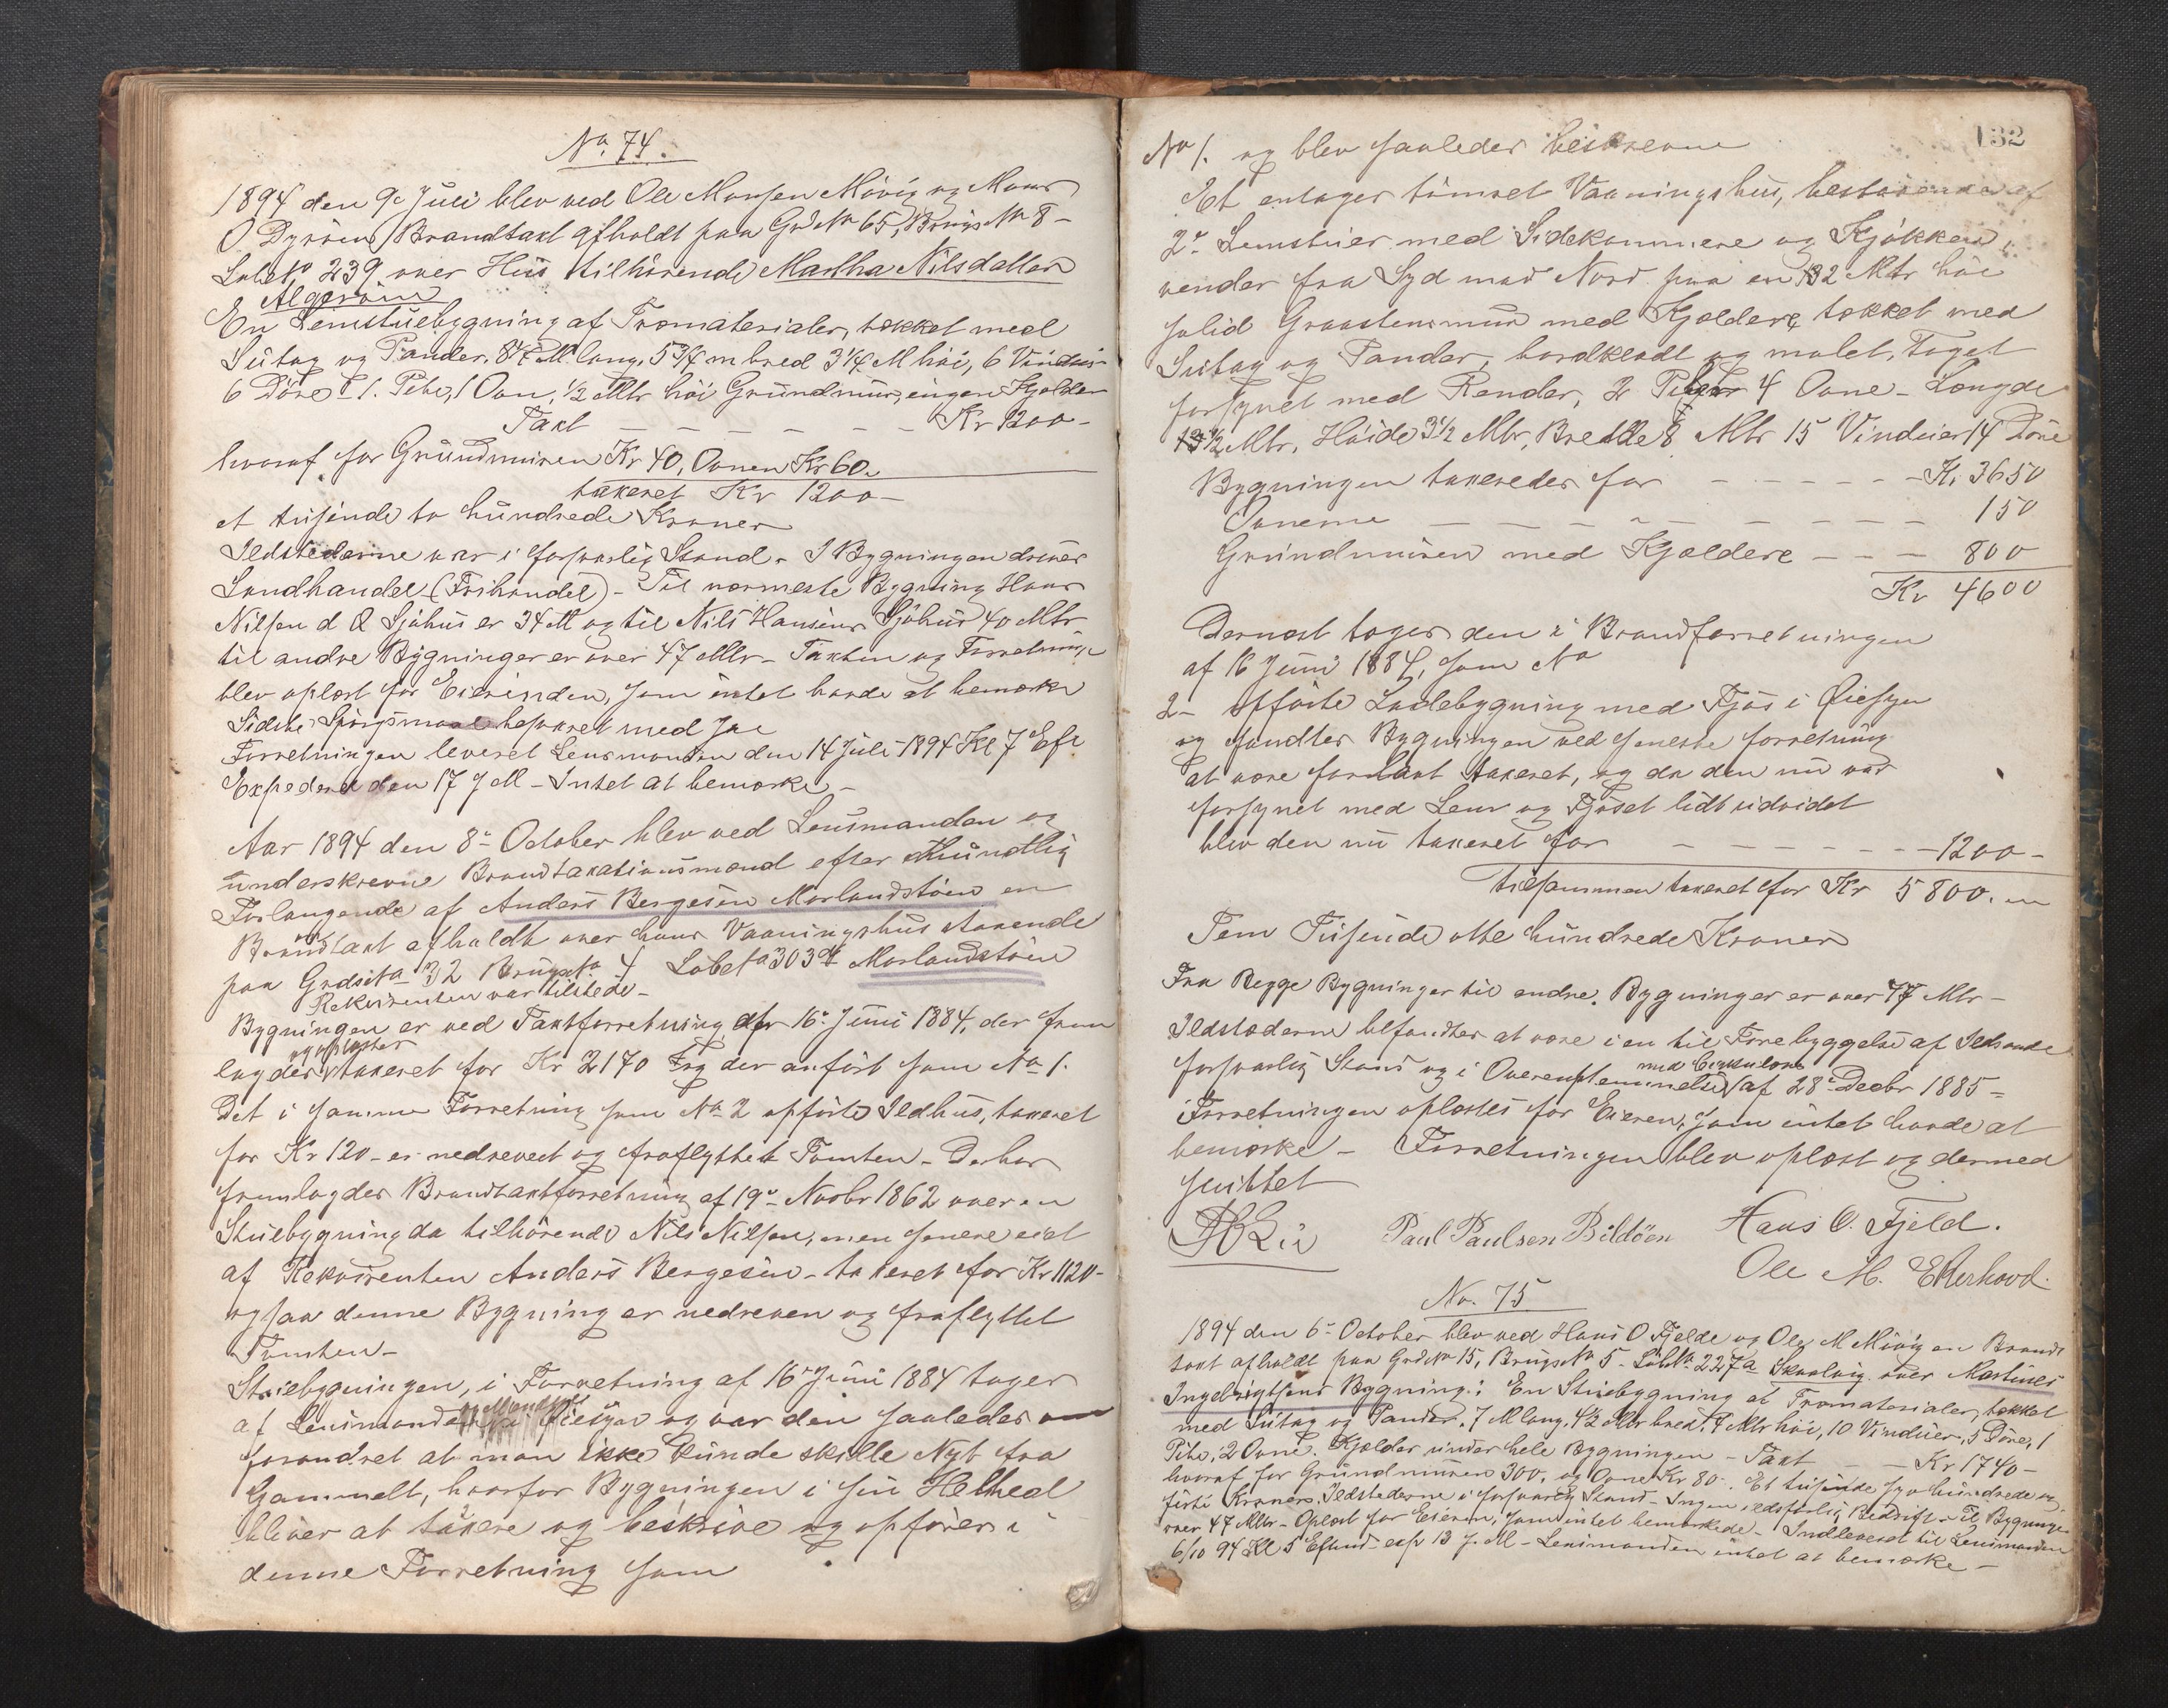 No. 74.
1894 den 9de Juli blev ved Ole Monsen Mövig og Mons
O Dyröen Brandtaxt afholdt paa Gd No 65, Brugs No 8 -
Löbe No 239 over Huus tilhörende Martha Nilsdatter
Algeröen
En Lemstuebygning af Træmaterialer, tækket med
Sutag og Pander, 8 1/4 M lang, 5 3/4 m bred 3 1/4 M höi, 6 Vinduer
6 Döre - 1. Pibe, 1 Ovn, 1/2 Mtr höi Grundmuur, ingen Kjælder
Taxt - - - - - - Kr 1200 -
hvoraf for Grundmuren Kr 40, Ovnen Kr 60.
taxeret Kr 1200 -
et tusinde to hundrede Kroner
Ildstederne var i forsvarlig Stand. I Bygningen drives
Landhandel (Frihandel) - Til nærmeste Bygning Hans
Nilsen d Q Sjöhus er 34 M og til Nils Hansens Sjöhus 40 Mtr
til andre Bygninger er over 47 Mtr - Taxten og Forretningen
blev oplæst for Eierinden, som intet havde at bemærke
Sidste Spörgsmaal besvaret med Ja
Forretningen leveret Lensmanden den 14 Juli 1894 Kl 7 Eft
Expederet den 17 s M - Intet at bemærke -
Aar 1894 den 8de October blev ved Lensmanden og
underskrevne Brandtaxationsmænd efter Mundtlig
Forlangende af Anders Bergesen Morlandstöen en
Brandtaxt afholdt over hans Vaaningshus staaende
paa Grds No 32 Brugs No 4 Löbe No 303 af Morlandstöen
Rekvirenten var tilstede -
Bygningen er ved Taxtforretning af 16de Juni 1884, der frem
og oplæstes
lagdes taxeret for Kr 2170 og der anfört som No 1.
Det i samme Forretning som No 2 opförte Ildhus, taxeret
for Kr 120 - er nedrevet og fraflyttet Tomten - Derhos
fremlagdes Brandtaxtforretning af 19de Novbr 1862 over en
Stuebygning da tilhörende Nils Nilsen, men senere eiet
af Rekvirenten Anders Bergesen - taxeret for Kr 1120 -
ogsaa denne Bygning er nedreven og fraflyttet
Tomten -
Stuebygningen, i Forretning af 16de Juni 1884 toges
og Mænd
af Lensmanden i Øiesyn og var den saaledes
forandret at man ikke kunde skille Nyt fra
Gammelt, hvorfor Bygningen i sin Helhed
bliver at taxere og beskrive og opföres i
denne Forretning som
132
No 1. og blev saaledes beskreven
Et enlages tömret Vaaningshus, bestaaende af
2de Lemstuer med Sidekammere og Kjökken,
vender fra Syd mod Nord paa en 2 Mtr höi
solid Graastensmuur med Kjældere, tækket med
Sutag og Pander, bordklædt og malet. Taget
forsynet med Render, 2 Piber 4 Ovne - Længde
13 1/2 Mtr, Höide 3 1/2 Mtr, Bredde 8 Mtr 15 Vinduer 14 Döre
Bygningen taxeredes for - - - - - - Kr 3650
Ovnene - - - - - - - - - 150
Grundmuren med Kjældere - - - 800
Kr 4600
Dernæst toges den i Brandforretningen
af 16 Juni 1884, som No
2 - opförte Ladebygning med Fjös i Øiesyn
og fandtes Bygningen ved seneste forretning
at være for lavt taxeret, og da den nu var
forsynet med Lem og Fjöset lidt udvidet
blev den nu taxeret for - - - - - - - 1200 -
tilsammen taxeret for Kr 5800.
Fem Tusinde otte hundrede Kroner
Fra Begge Bygninger til andre Bygninger er over 47 Mtr -
Ildstæderne befandtes at være i en til Forebyggelse af Ildsvaade
med Cirkulære
forsvarlig Stand og i Overenstemmelse af 28de Decbr 1885 -
Forretningen oplæstes for Eieren, som intet havde at
bemærke - Forretningen blev oplæst og dermed
sluttet
Paul Paulsen Bildöen Hans O. Fjeld.
Ole M. Ekerhovd.
No. 75
1894 den 6te October blev ved Hans O Fjelde og Ole M Mövig en Brand
taxt afholdt paa Grds No 15, Brugs No 5 - Löbe No 227a Skaalvig over Martines
Ingebrigtsens Bygning: En Stuebygning af Træmaterialer, tækket
med Sutag og Pander. 7 M lang, 4 1/2 Mtr bred, 4 Mtr höi, 10 Vinduer, 5 Döre, 1
Pibe, 2 Ovne. Kjælder under hele Bygningen - Taxt - - Kr 1740 -
hvoraf for Grundmuren 300, og Ovne Kr 80. Et tusinde syv hundrede og
förti Kroner. Ildstederne i forsvarlig Stand - Ingen ildsfarlig Bedrift - Til Bygninger
over 47 Mtr - Oplæst for Eieren, som intet bemærkede - Indleveret til Lensmanden
6/10 94 Kl 5 Eftmd - exp 13 s. M - Lensmanden intet at bemærke -